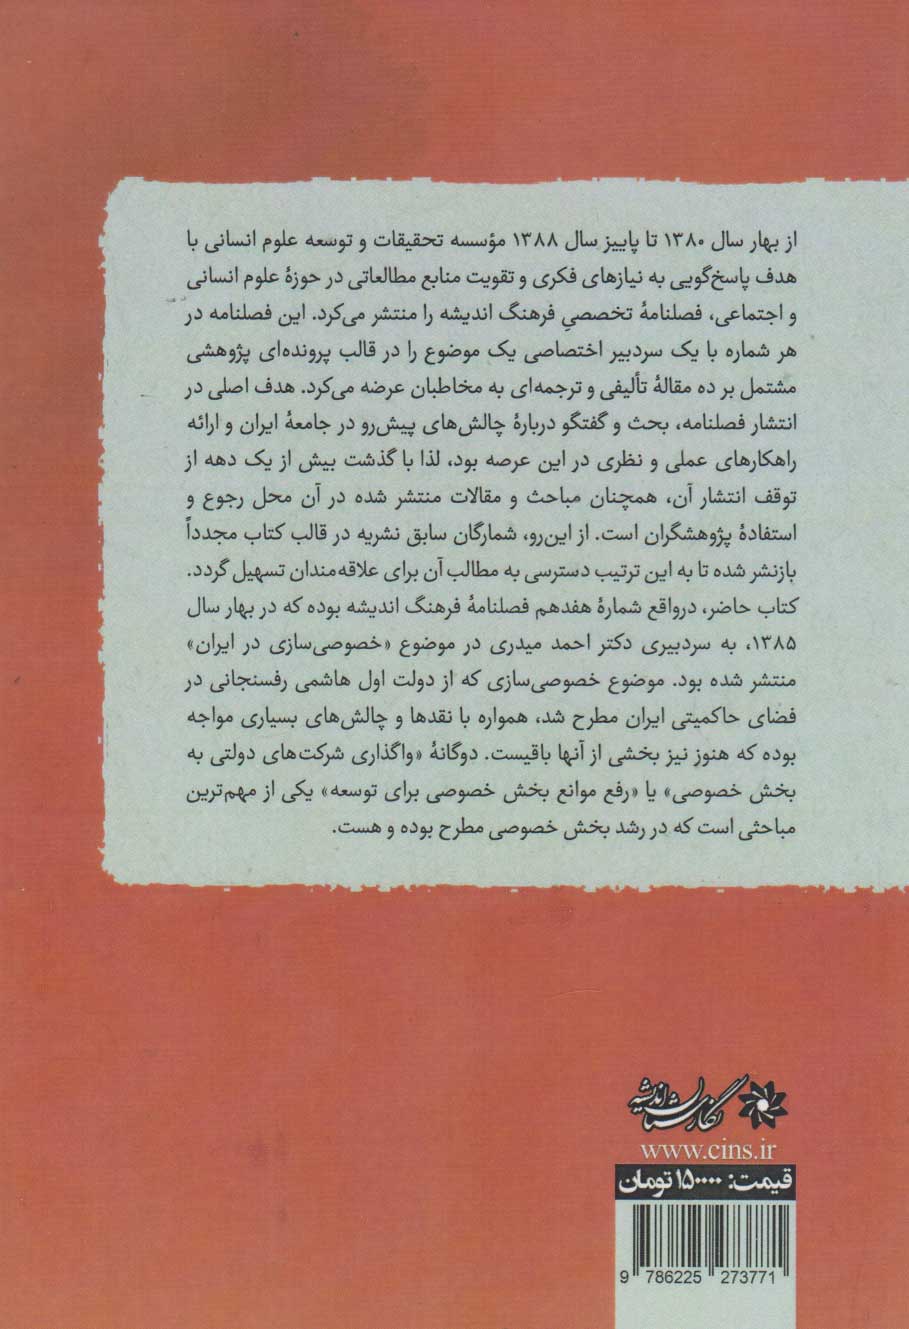 از بهار سال ۱۳۸۰ تا پاییز سال ۱۳۸۸ مؤسسه تحقیقات و توسعه علوم انسانی با
هدف پاسخ‌گویی به نیازهای فکری و تقویت منابع مطالعاتی در حوزهٔ علوم انسانی
و اجتماعی، فصلنامهٔ تخصصیِ فرهنگ اندیشه را منتشر می‌کرد. این فصلنامه در
هر شماره با یک سردبیر اختصاصی یک موضوع را در قالب پرونده‌ای پژوهشی
مشتمل بر ده مقالهٔ تألیفی و ترجمه‌ای به مخاطبان عرضه می‌کرد. هدف اصلی در
انتشار فصلنامه، بحث و گفتگو دربارهٔ چالش‌های پیش‌رو در جامعهٔ ایران و ارائه
راهکارهای عملی و نظری در این عرصه بود، لذا با گذشت بیش از یک دهه از
توقف انتشار آن، همچنان مباحث و مقالات منتشر شده در آن محل رجوع و
استفادهٔ پژوهشگران است. از این‌رو، شمارگان سابق نشریه در قالب کتاب مجدداً
بازنشر شده تا به این ترتیب دسترسی به مطالب آن برای علاقه‌مندان تسهیل گردد.
کتاب حاضر، درواقع شمارهٔ هفدهم فصلنامهٔ فرهنگ اندیشه بوده که در بهار سال
۱۳۸۵، به سردبیری دکتر احمد میدری در موضوع «خصوصی‌سازی در ایران»
منتشر شده بود. موضوع خصوصی‌سازی که از دولت اول هاشمی رفسنجانی در
فضای حاکمیتی ایران مطرح شد، همواره با نقدها و چالش‌های بسیاری مواجه
بوده که هنوز نیز بخشی از آنها باقیست. دوگانهٔ «واگذاری شرکت‌های دولتی به
بخش خصوصی» یا «رفع موانع بخش خصوصی برای توسعه» یکی از مهم‌ترین
مباحثی است که در رشد بخش خصوصی مطرح بوده و هست.
نگارستان اندیشه
www.cins.ir
قیمت: ۱۵۰۰۰۰ تومان
9 786225 273771